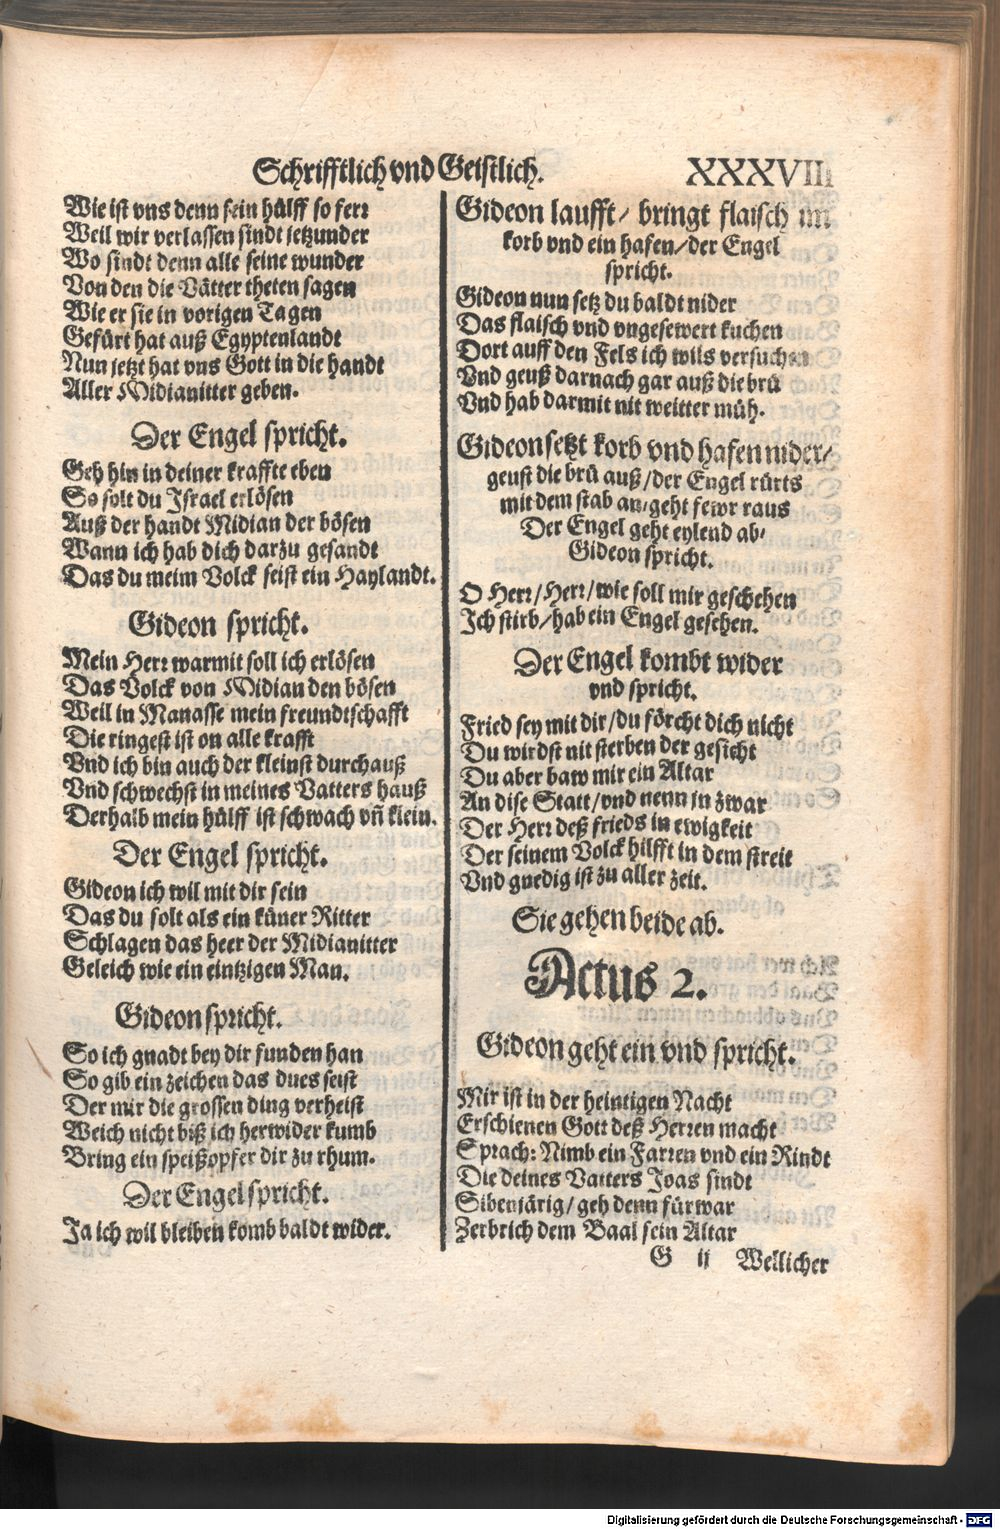 Schrifftlich vnd Geistlich. XXXVIII
Wie ist vns denn sein hülff so ferr
Weil wir verlassen sindt jetzunder
Wo sindt denn alle seine wunder
Von den die Vätter theten sagen
Wie er sie in vorigen Tagen
Gefürt hat auß Egyptenlandt
Nun jetzt hat vns Gott in die handt
Aller Midianitter geben.
Der Engel spricht.
Geh hin in deiner kraffte eben
So solt du Israel erlösen
Auß der handt Midian der bösen
Wann ich hab dich darzu gesandt
Das du meim Volck seist ein Haylandt.
Gideon spricht.
Mein Herr warmit soll ich erlösen
Das Volck von Midian den bösen
Weil in Manasse mein freundtschafft
Die ringest ist on alle krafft
Vnd ich bin auch der kleinst durchauß
Vnd schwechst in meines Vatters hauß
Derhalb mein hülff ist schwach vñ klein.
Der Engel spricht.
Gideon ich wil mit dir sein
Das du solt als ein küner Ritter
Schlagen das heer der Midianitter
Geleich wie ein eintzigen Man.
Gideon spricht.
So ich gnadt bey dir funden han
So gib ein zeichen das dues seist
Der mir die grossen ding verheist
Weich nicht biß ich herwider kumb
Bring ein speißopfer dir zu rhum.
Der Engel spricht.
Ja ich wil bleiben komb baldt wider.
Gideon laufft/ bringt flaisch im
korb vnd ein hafen/der Engel
spricht.
Gideon nun setz du baldt nider
Das flaisch vnd vngesewert kuchen
Dort auff den Fels ich wils versuchen
Vnd geuß darnach gar auß die brü
Vnd hab darmit nit weitter müh.
Gideon setzt korb vnd hafen nider/
geust die brü auß/der Engel rürts
mit dem stab an/geht fewr raus
Der Engel geht eylend ab/
Gideon spricht.
O Herr/Herr/wie soll mir geschehen
Ich stirb/hab ein Engel gesehen.
Der Engel kombt wider
vnd spricht.
Fried sey mit dir/du förcht dich nicht
Du wirdst nit sterben der gesicht
Du aber baw mir ein Altar
An dise Statt/vnd nenn jn zwar
Der Herr deß frieds in ewigkeit
Der seinem Volck hilfft in dem streit
Vnd gnedig ist zu aller zeit.
Sie gehen beide ab.
Actus 2.
Gideon geht ein vnd spricht.
Mir ist in der heintigen Nacht
Erschienen Gott deß Herren macht
Sprach: Nimb ein Farren vnd ein Rindt
Die deines Vatters Joas sindt
Sibenjärig/geh denn fürwar
Zerbrich dem Baal sein Altar
G ij Wellicher
Digitalisierung gefördert durch die Deutsche Forschungsgemeinschaft - DFG